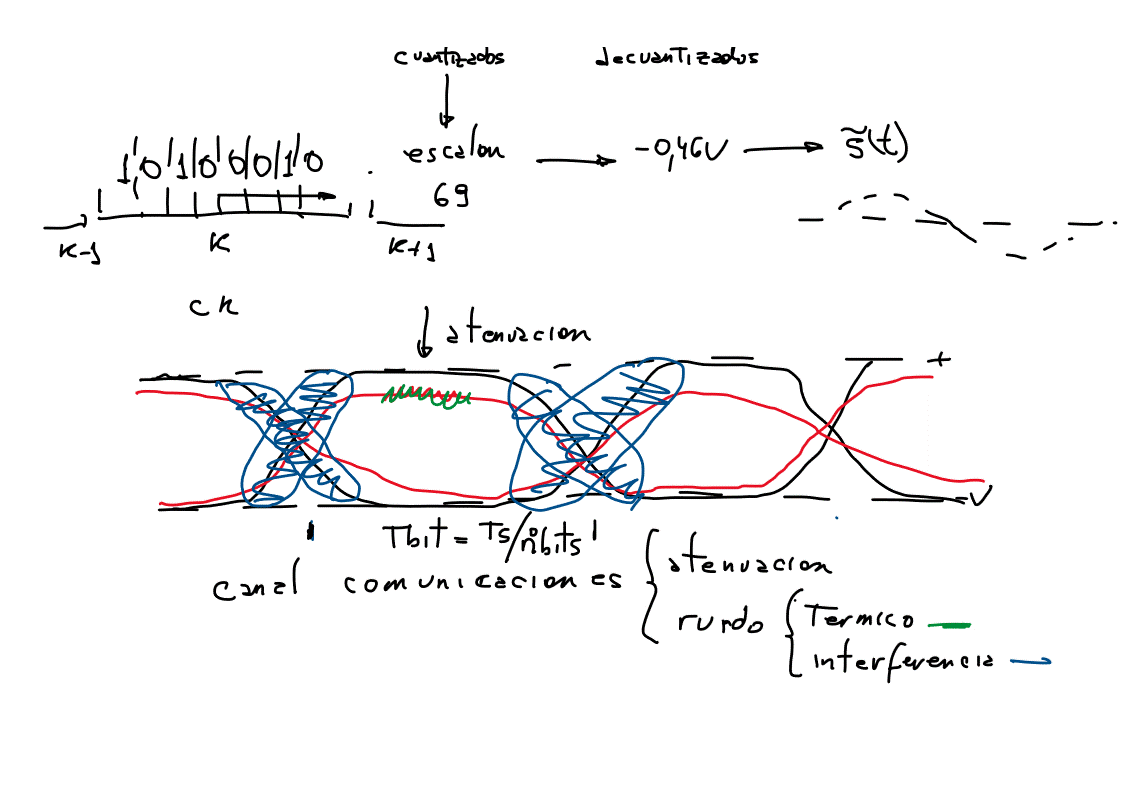 cuantizados decuantizados
1 0 1 0 0 0 1 0 escalon -0,46V s̃(t)
69
K-1 K K+1
CK
atenuacion
+
-V
Tbit = Ts/nºbits
canal comunicaciones atenuacion
ruido Termico
interferencia